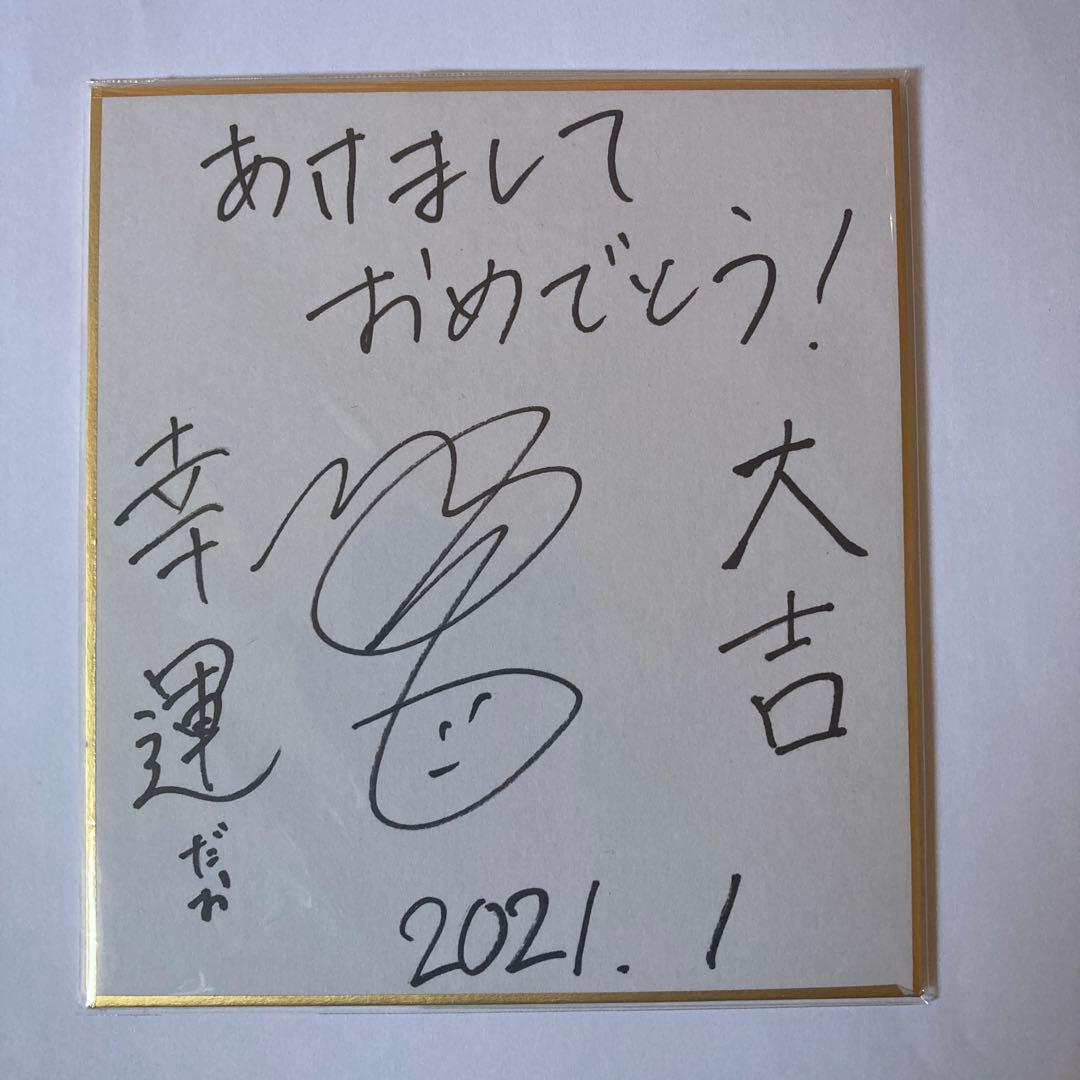 あけまして
おめでとう!
大吉
幸運
だね
2021.1